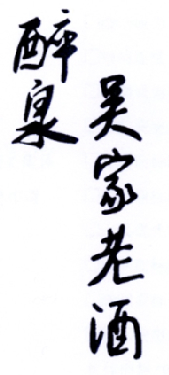 醉泉
吴家老酒